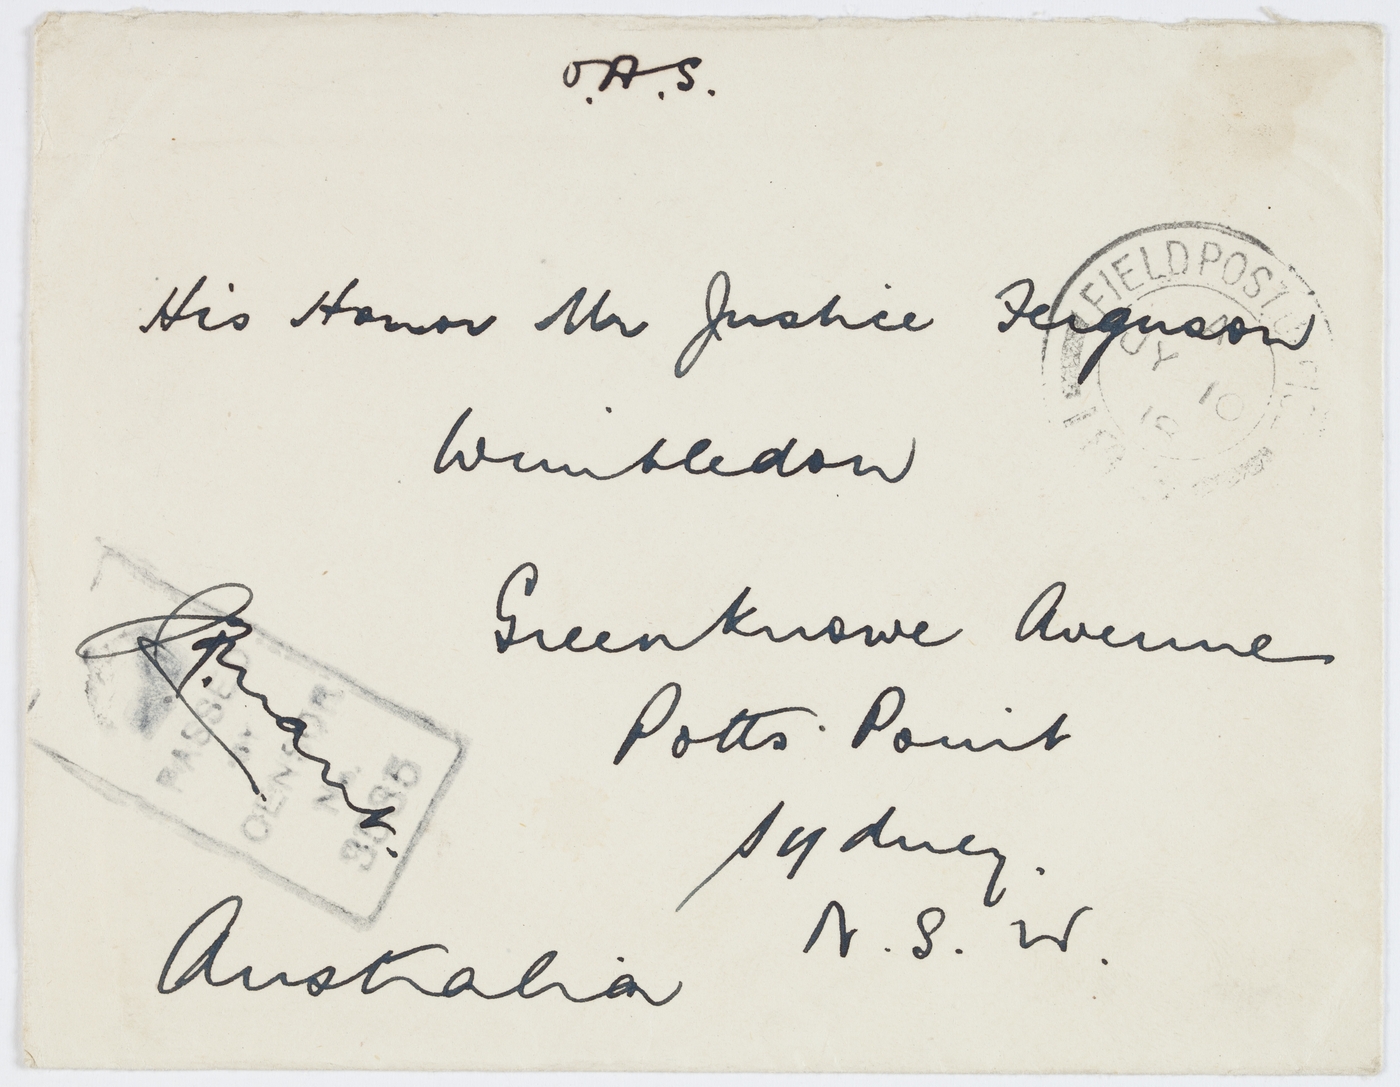 O.A.S.
FIELD POST
His Honor Mr Justice Ferguson
A
JY 10
Wimbledon
Greenknowe Avenue
Potts Point
Sydney.
N.S.W.
Australia
PASSED
BY
CENSOR
No.
3535